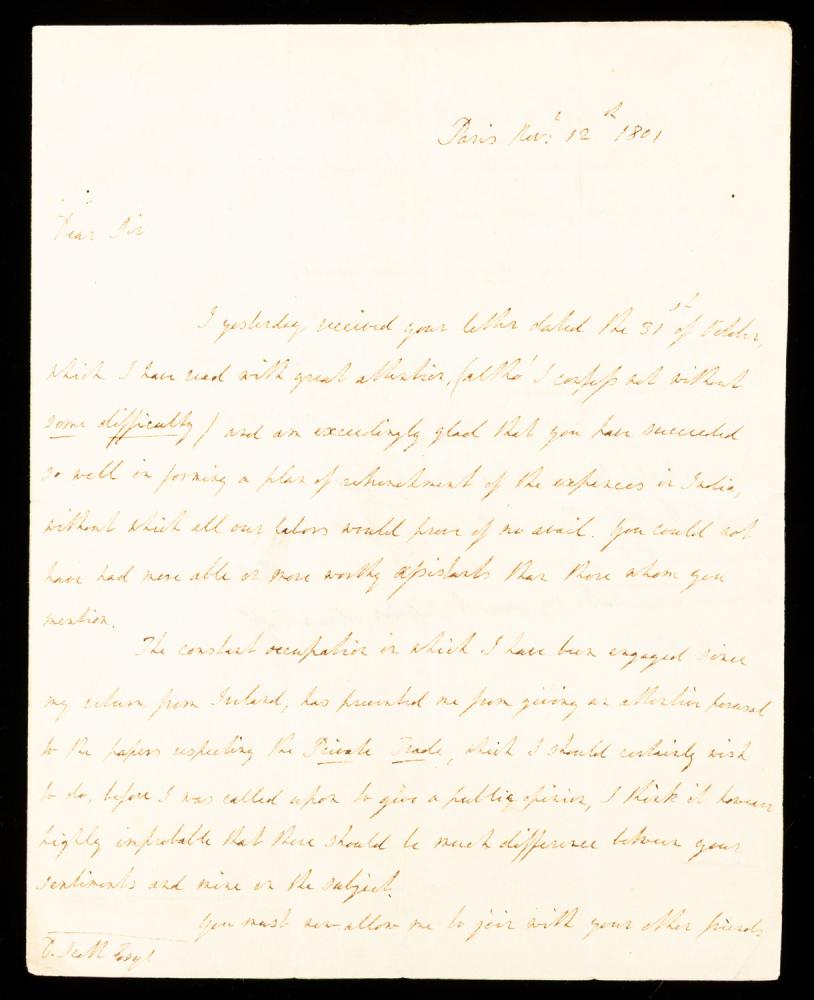 Paris Nov.r 12th 1801
Dear Sir
I yesterday received your letter dated the 31st of October,
which I have read with great attention, (altho' I confess not without
some difficulty) and am exceedingly glad that you have succeeded
so well in forming a plan of retrenchment of the expences in India,
without which all our labors would prove of no avail. You could not
have had more able or more worthy assistants than those whom you
mention.
The constant occupation in which I have been engaged since
my return from Ireland, has prevented me from giving an attentive perusal
to the papers respecting the Private Trade, which I should certainly wish
to do, before I was called upon to give a public opinion, I think it however
highly improbable that there should be much difference between your
sentiments and mine on the subject.
You must now allow me to join with your other friends
D. Scott Esqr